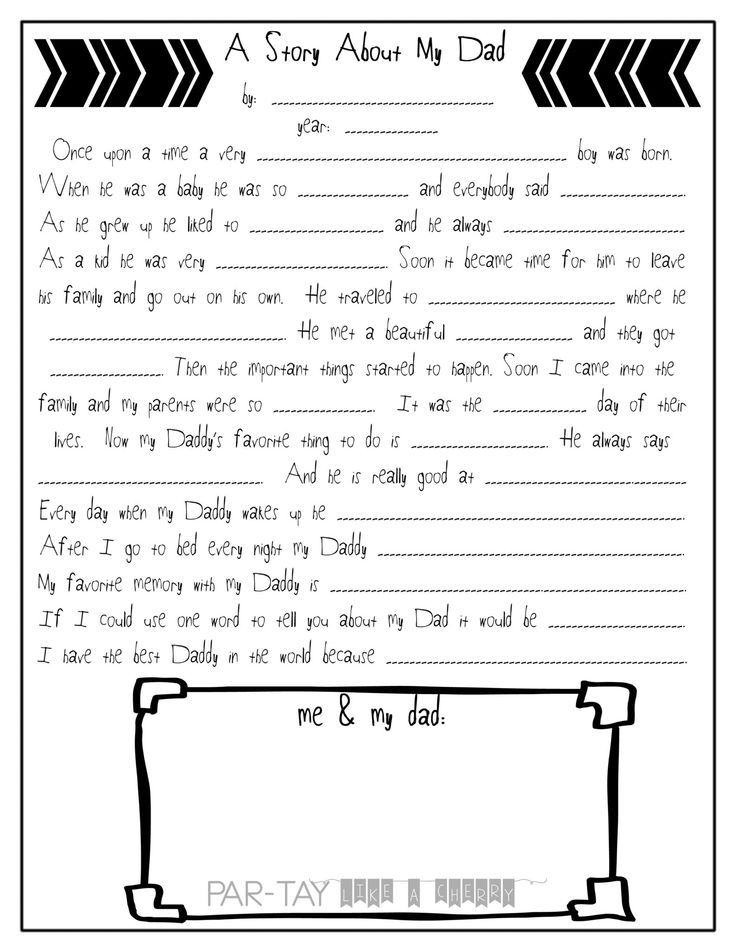 A Story About My Dad
by: ____________________
year: __________
Once upon a time a very ______________________________ boy was born.
When he was a baby he was so ___________ and everybody said ____________.
As he grew up he liked to ______________ and he always ___________________
As a kid he was very _________________. Soon it became time for him to leave
his family and go out on his own. He traveled to ____________________ where he
________________________. He met a beautiful ____________ and they got
____________. Then the important things started to happen. Soon I came into the
family and my parents were so ___________. It was the __________ day of their
lives. Now my Daddy's favorite thing to do is ______________. He always says
________________________. And he is really good at _____________________
Every day when my Daddy wakes up he ____________________________________.
After I go to bed every night my Daddy ________________________________.
My favorite memory with my Daddy is ____________________________________
If I could use one word to tell you about my Dad it would be ______________.
I have the best Daddy in the world because ______________________________
me & my dad:
PAR-TAY LIKE A CHERRY